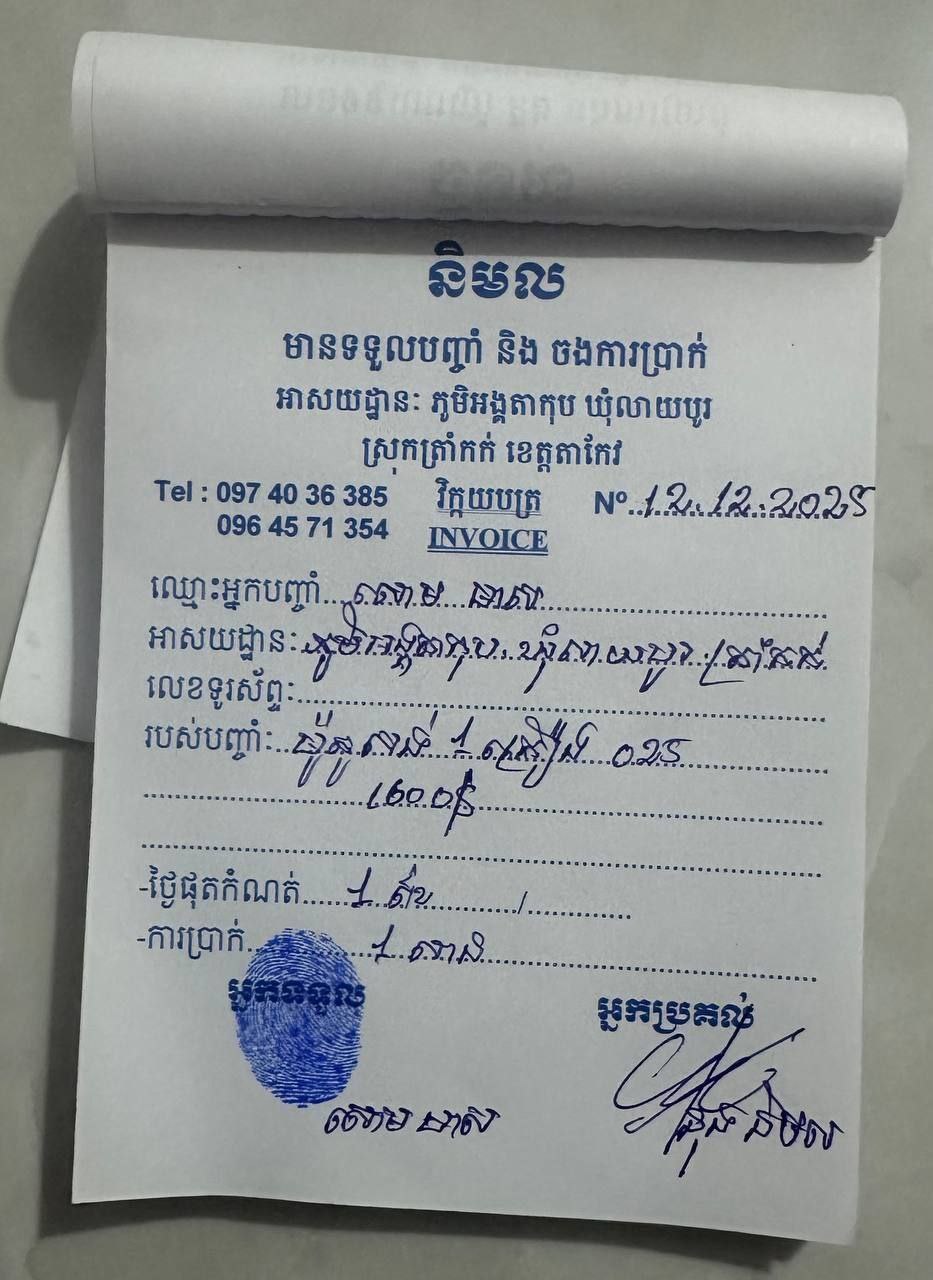 និមល
មានទទួលបញ្ចាំ និង ចងការប្រាក់
អាសយដ្ឋានៈ ភូមិអង្គតាកុប ឃុំលាយបូរ
ស្រុកត្រាំកក់ ខេត្តតាកែវ
Tel : 097 40 36 385 វិក្កយបត្រ Nº 12.12.2025
096 45 71 354 INVOICE
ឈ្មោះអ្នកបញ្ចាំ សោម មាស
អាសយដ្ឋានៈ ភូមិអង្គតាកុប ឃុំលាយបូរ ត្រាំកក់
លេខទូរស័ព្ទៈ
របស់បញ្ចាំៈ ម៉ូតូ 1 គ្រឿង 025
-ថ្ងៃផុតកំណត់ 1
-ការប្រាក់ 1
អ្នកទទួល អ្នកប្រគល់
សោម មាស និមល